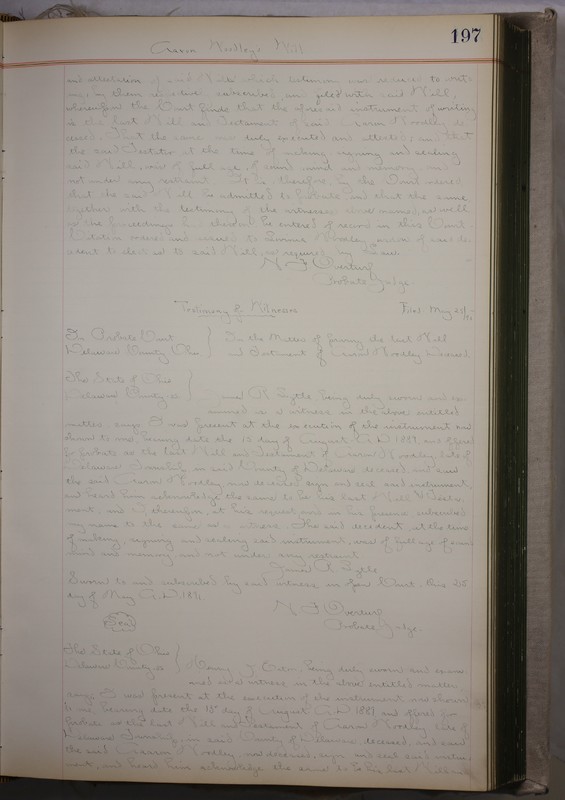 197
Aaron Woodley's Will
and attestation of said Will which testimony was reduced to writ-
ing, by them respectively subscribed, and filed with said Will,
wherefore the Court finds that the aforesaid instrument of writing
is the last Will and Testament of said Aaron Woodley de-
ceased, that the same was duly executed and attested, and that
the said Testator at the time of making, signing and sealing
said Will, was of full age, of sound mind and memory, and
not under any restraint. It is therefore by the Court ordered
that the said Will be admitted to probate and that the same
together with the testimony of the witnesses above named, as well
as the proceedings be entered of record in this Court.
Citation ordered and issued to Woodley, widow of said de-
cedent to elect as to said Will, as required by law.
N F Overturf
Probate Judge.
Testimony of Witnesses Filed May 25/
In Probate Court
Delaware County Ohio
In the Matter of proving the last Will
and Testament of Aaron Woodley Deceased.
The State of Ohio
Delaware County ss
James A. Lytle being duly sworn and ex-
amined as a witness in the above entitled
matter, says, I was present at the execution of the instrument now
shown to me, bearing date the 13 day of August A.D. 1889 and offered
for probate as the last Will and Testament of Aaron Woodley, late of
Delaware Township in said County of Delaware deceased, and saw
the said Aaron Woodley, now deceased, sign and seal said instrument,
and heard him acknowledge the same to be his last Will & Testa-
ment, and I thereupon, at his request, and in his presence, subscribed
my name to the same as a witness. The said decedent at the time
of making, signing and sealing said instrument, was of full age of sound
mind and memory and not under any restraint.
James A. Lytle
Sworn to and subscribed by said witness in open Court, this 25
day of May A.D. 189
N F Overturf
Probate Judge.
Seal
The State of Ohio
Delaware County ss
J. being duly sworn and exam-
ined as a witness in the above entitled matter
says I was present at the execution of the instrument now shown
to me bearing date the 13 day of August A.D. 1889 and offered for
Probate as the last Will and Testament of Aaron Woodley late of
Delaware Township, in said County of Delaware, deceased, and saw
the said Aaron Woodley, now deceased, sign and seal said instru-
ment, and heard him acknowledge the same to be his last Will and